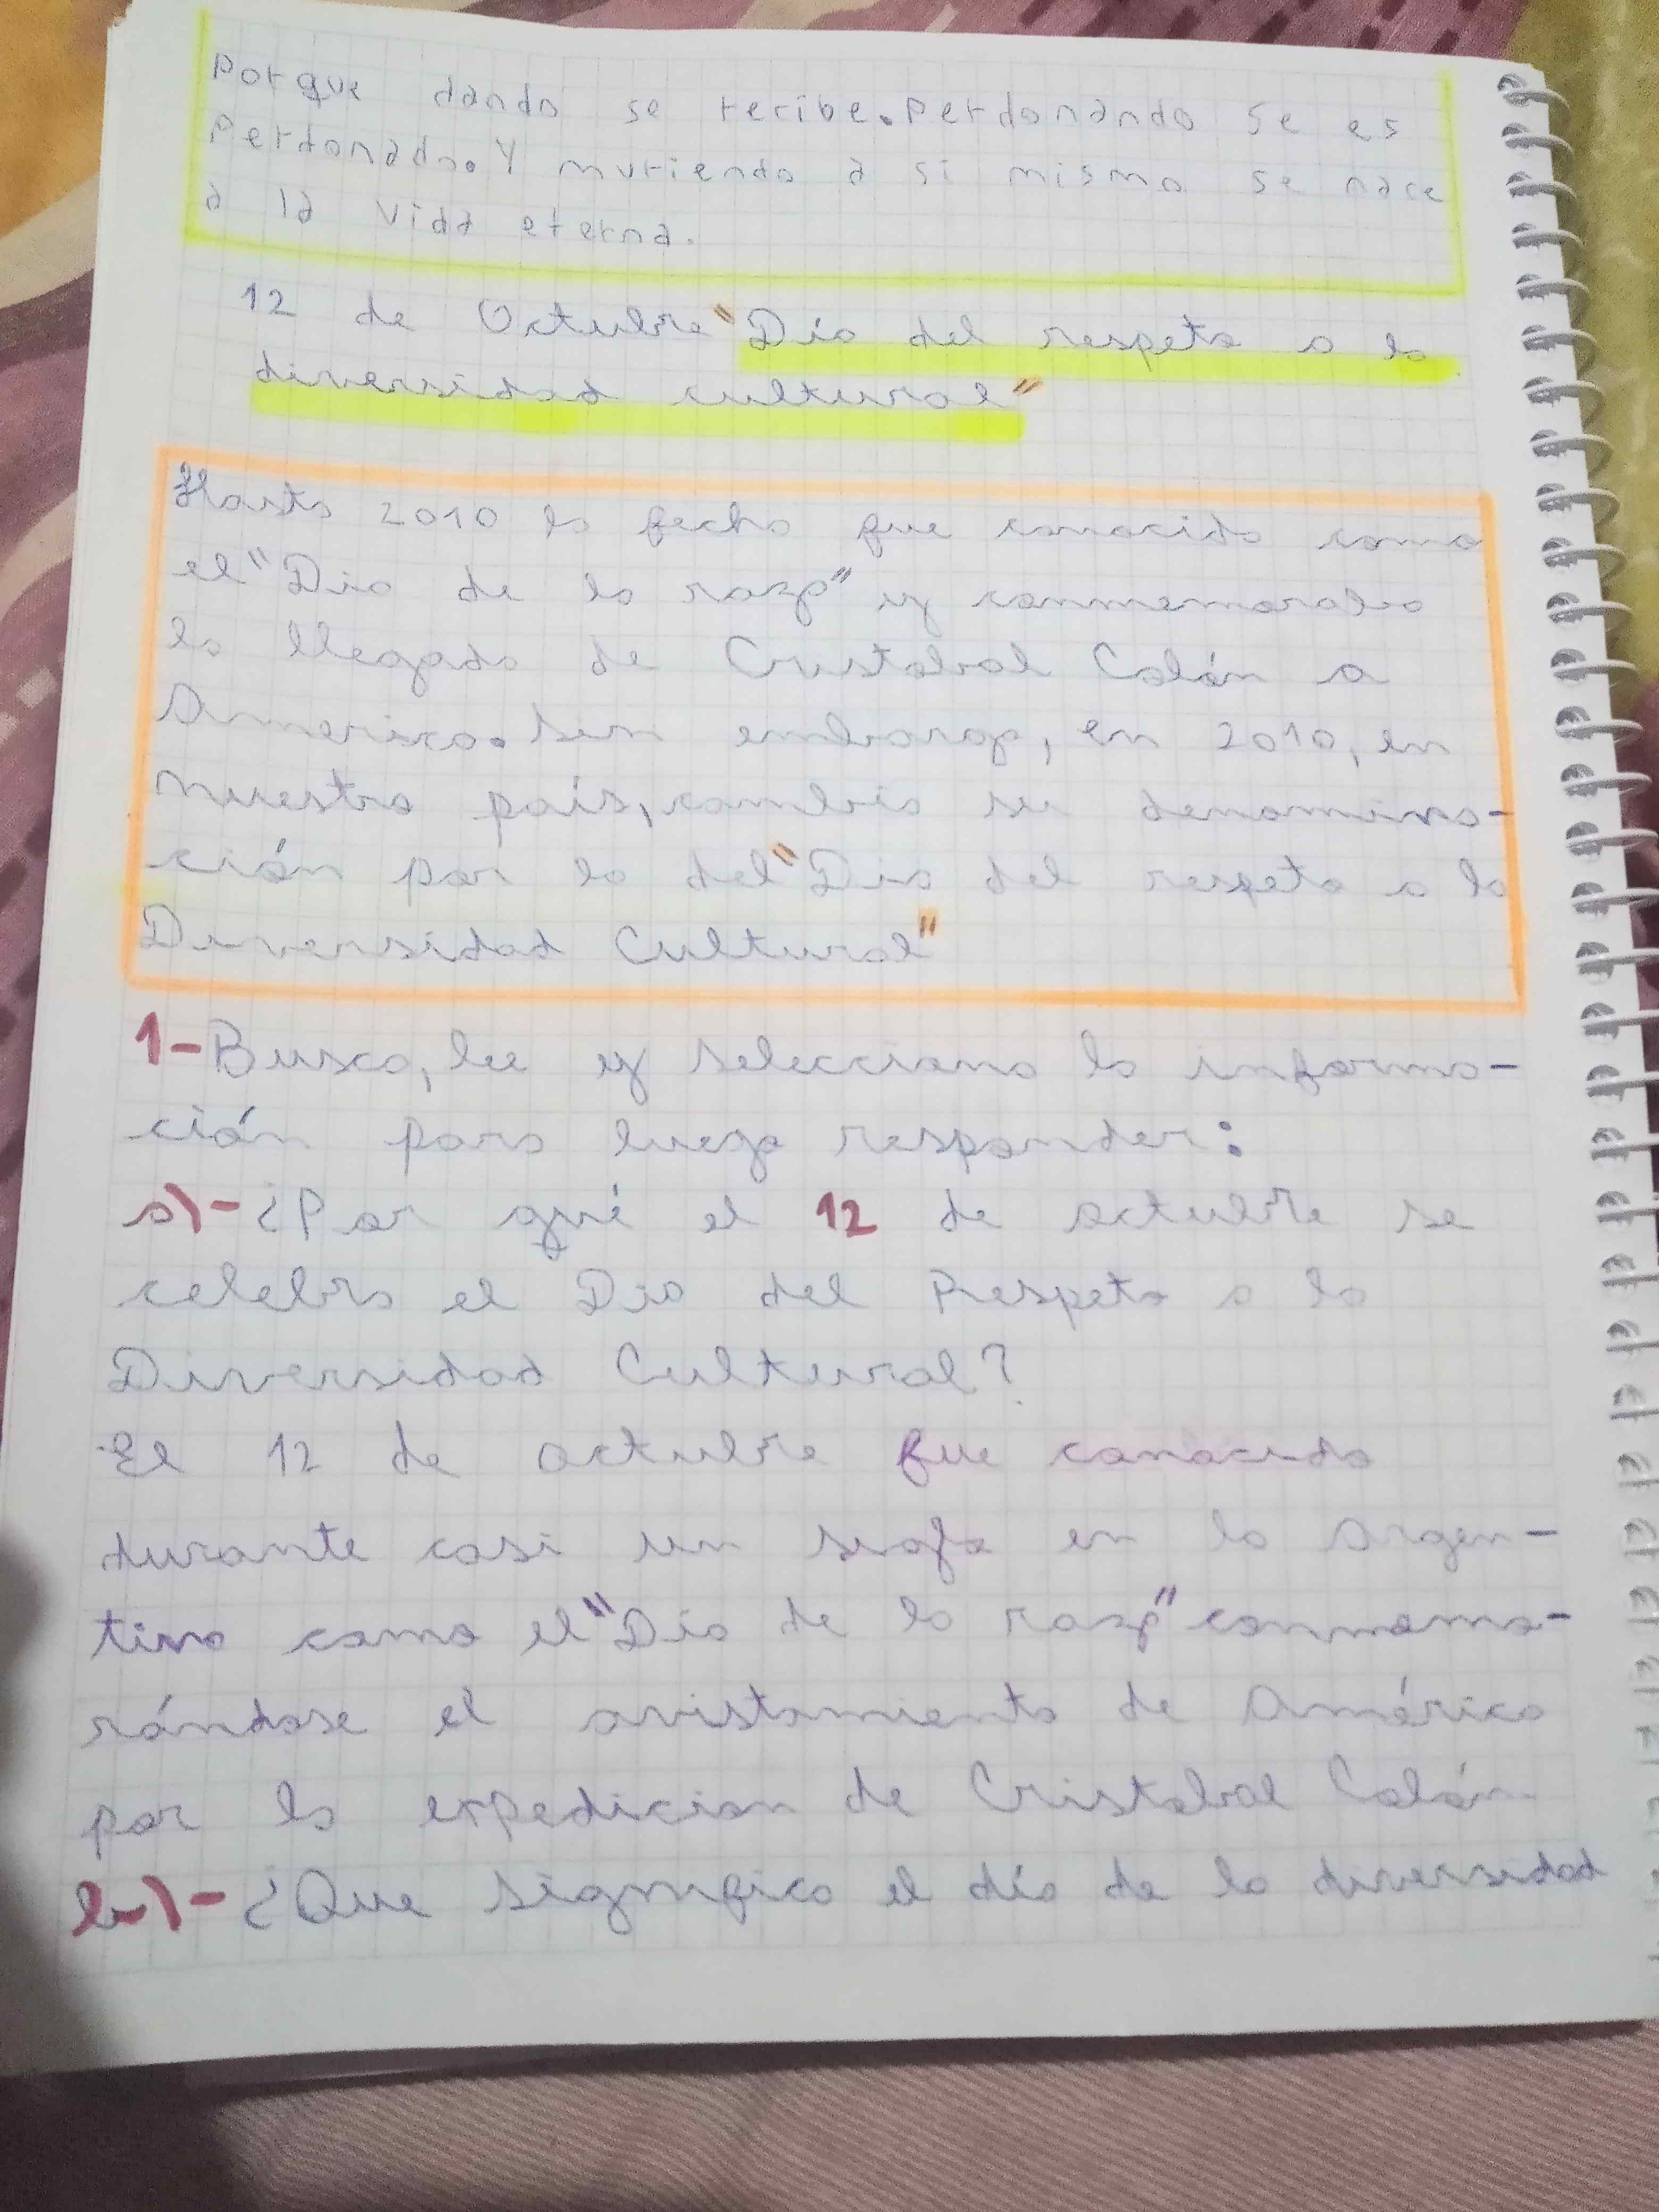 Porque dando se recibe. Perdonando se es
Perdonado. Y muriendo a si mismo se nace
a la vida eterna.
12 de Octubre "Día del respeto a la
diversidad cultural"
Hasta 2010 la fecha fue conocida como
el "Dia de la raza" y conmemoraba
la llegada de Cristobal Colón a
America. Sin embargo, en 2010, en
nuestro país, cambio su denomina-
ción por la del "Dia del respeto a la
Diversidad Cultural"
1- Busco, lee y selecciono la informa-
ción para luego responder:
a)- ¿Por qué el 12 de octubre se
celebra el Dia del Respeto a la
Diversidad Cultural?
El 12 de octubre fue conocido
durante casi un siglo en la Argen-
tina como el "Día de la raza" conmemo-
rándose el avistamiento de América
por la expedicion de Cristobal Colón
b)- ¿Que significa el día de la diversidad